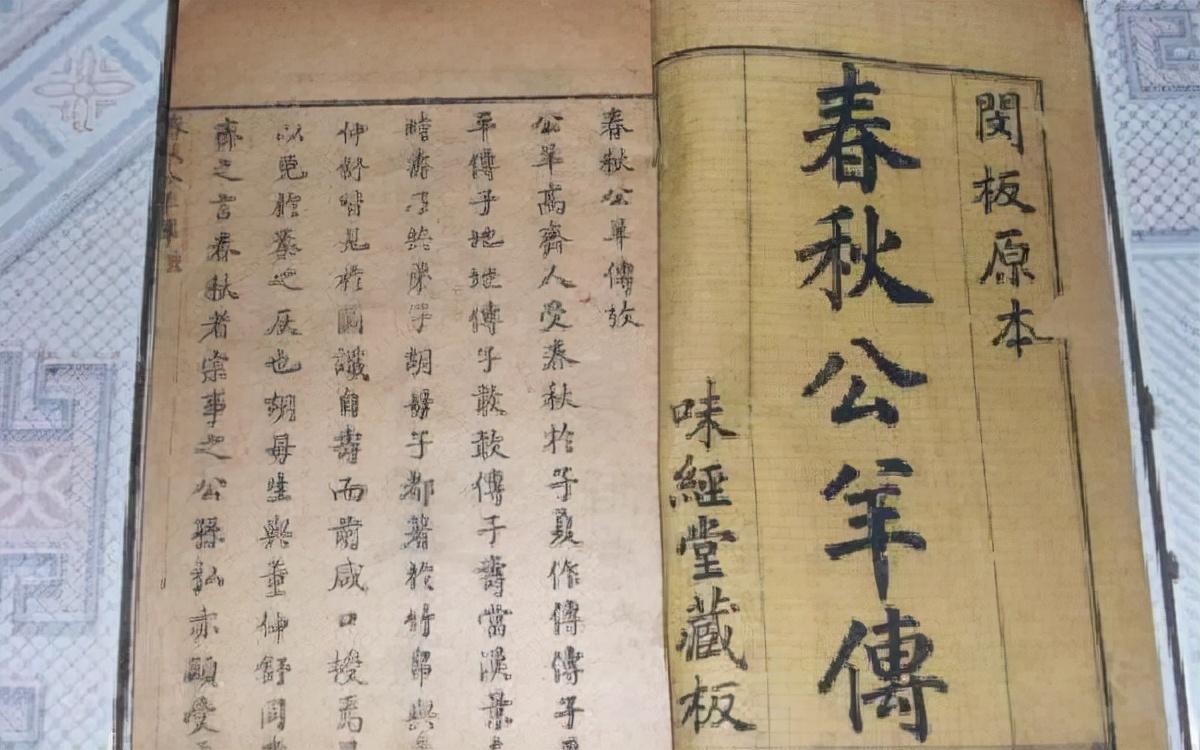 閔板原本
春秋公羊傳
味經堂藏板
春秋公羊傳攷
公羊高齊人受春秋於子夏作傳傳子
平傳子地地傳子敢敢傳子壽當漢景
時壽乃與弟子胡母子都著於竹帛與
仲舒皆見於圖讖自壽而前咸口授焉
也胡毋生與董仲舒同
齊之言春秋者宗事之公孫弘亦頗受